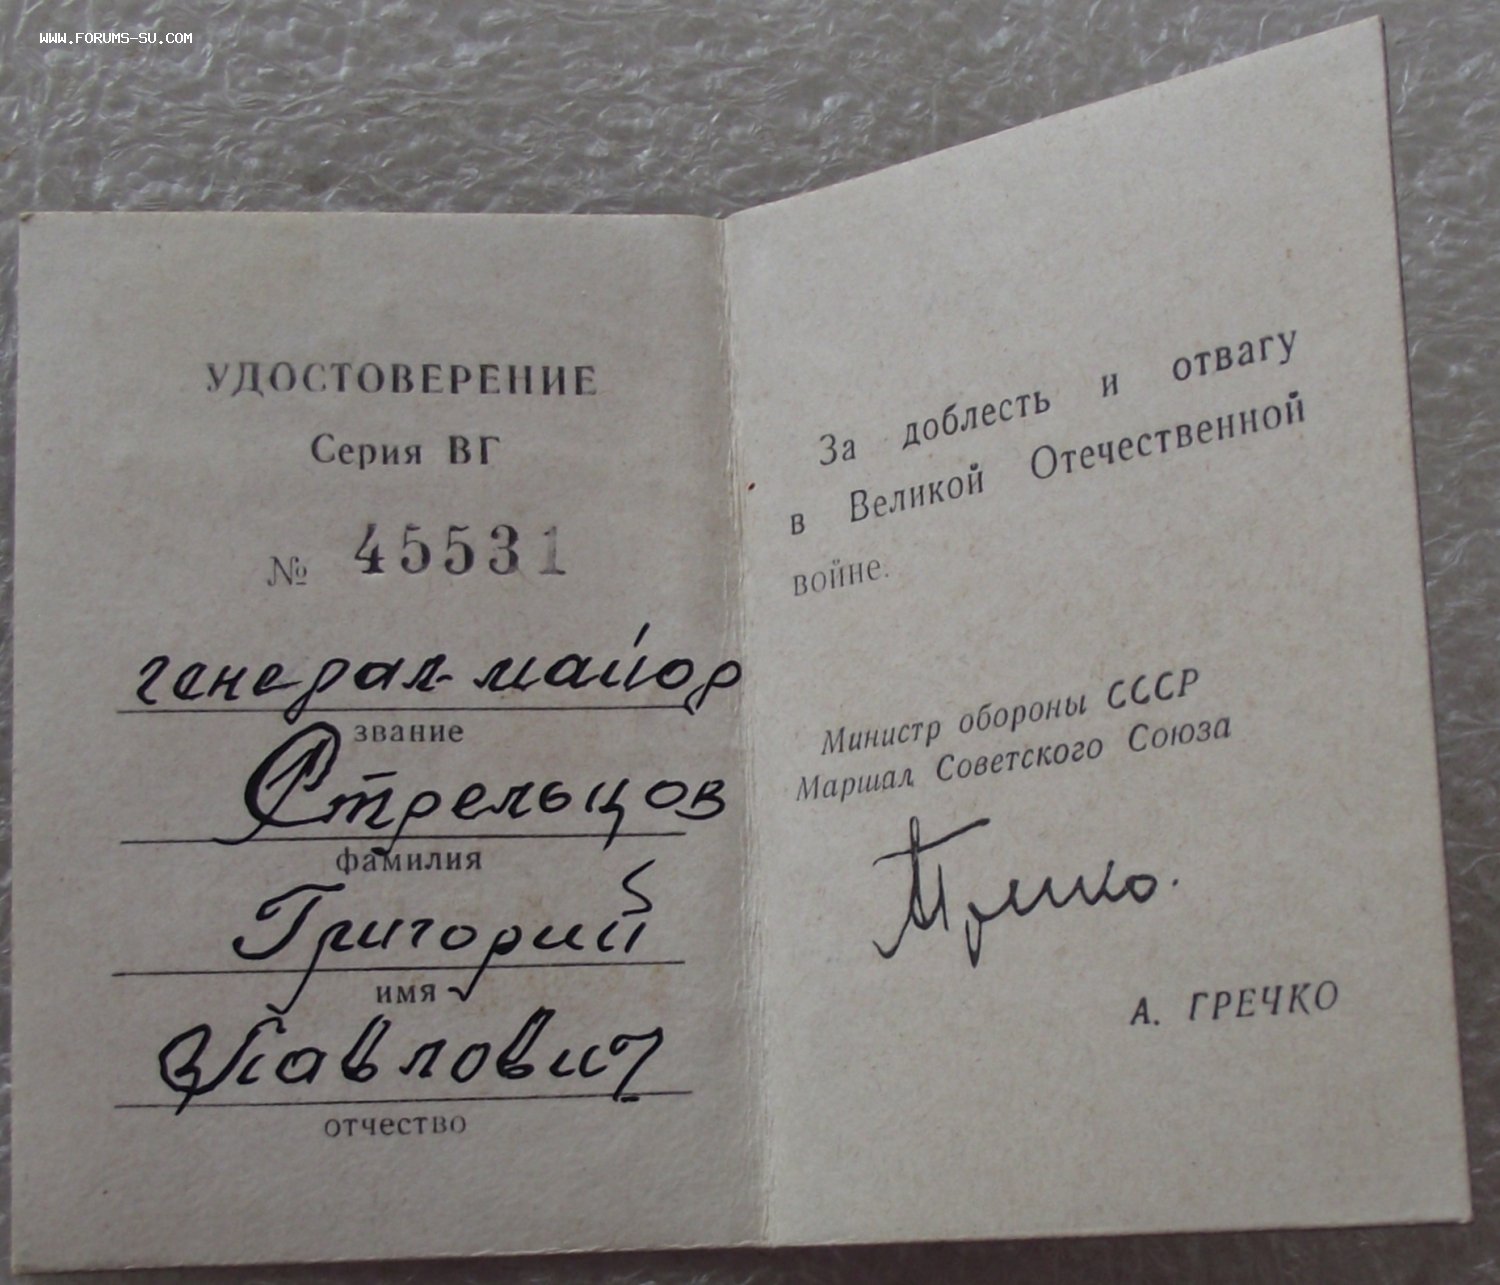 WWW.FORUMS-SU.COM
УДОСТОВЕРЕНИЕ
Серия ВГ
№ 45531
генерал-майор
звание
Стрельцов
фамилия
Григорий
имя
Павлович
отчество
За доблесть и отвагу
в Великой Отечественной
войне.
Министр обороны СССР
Маршал Советского Союза
Гречко.
А. ГРЕЧКО